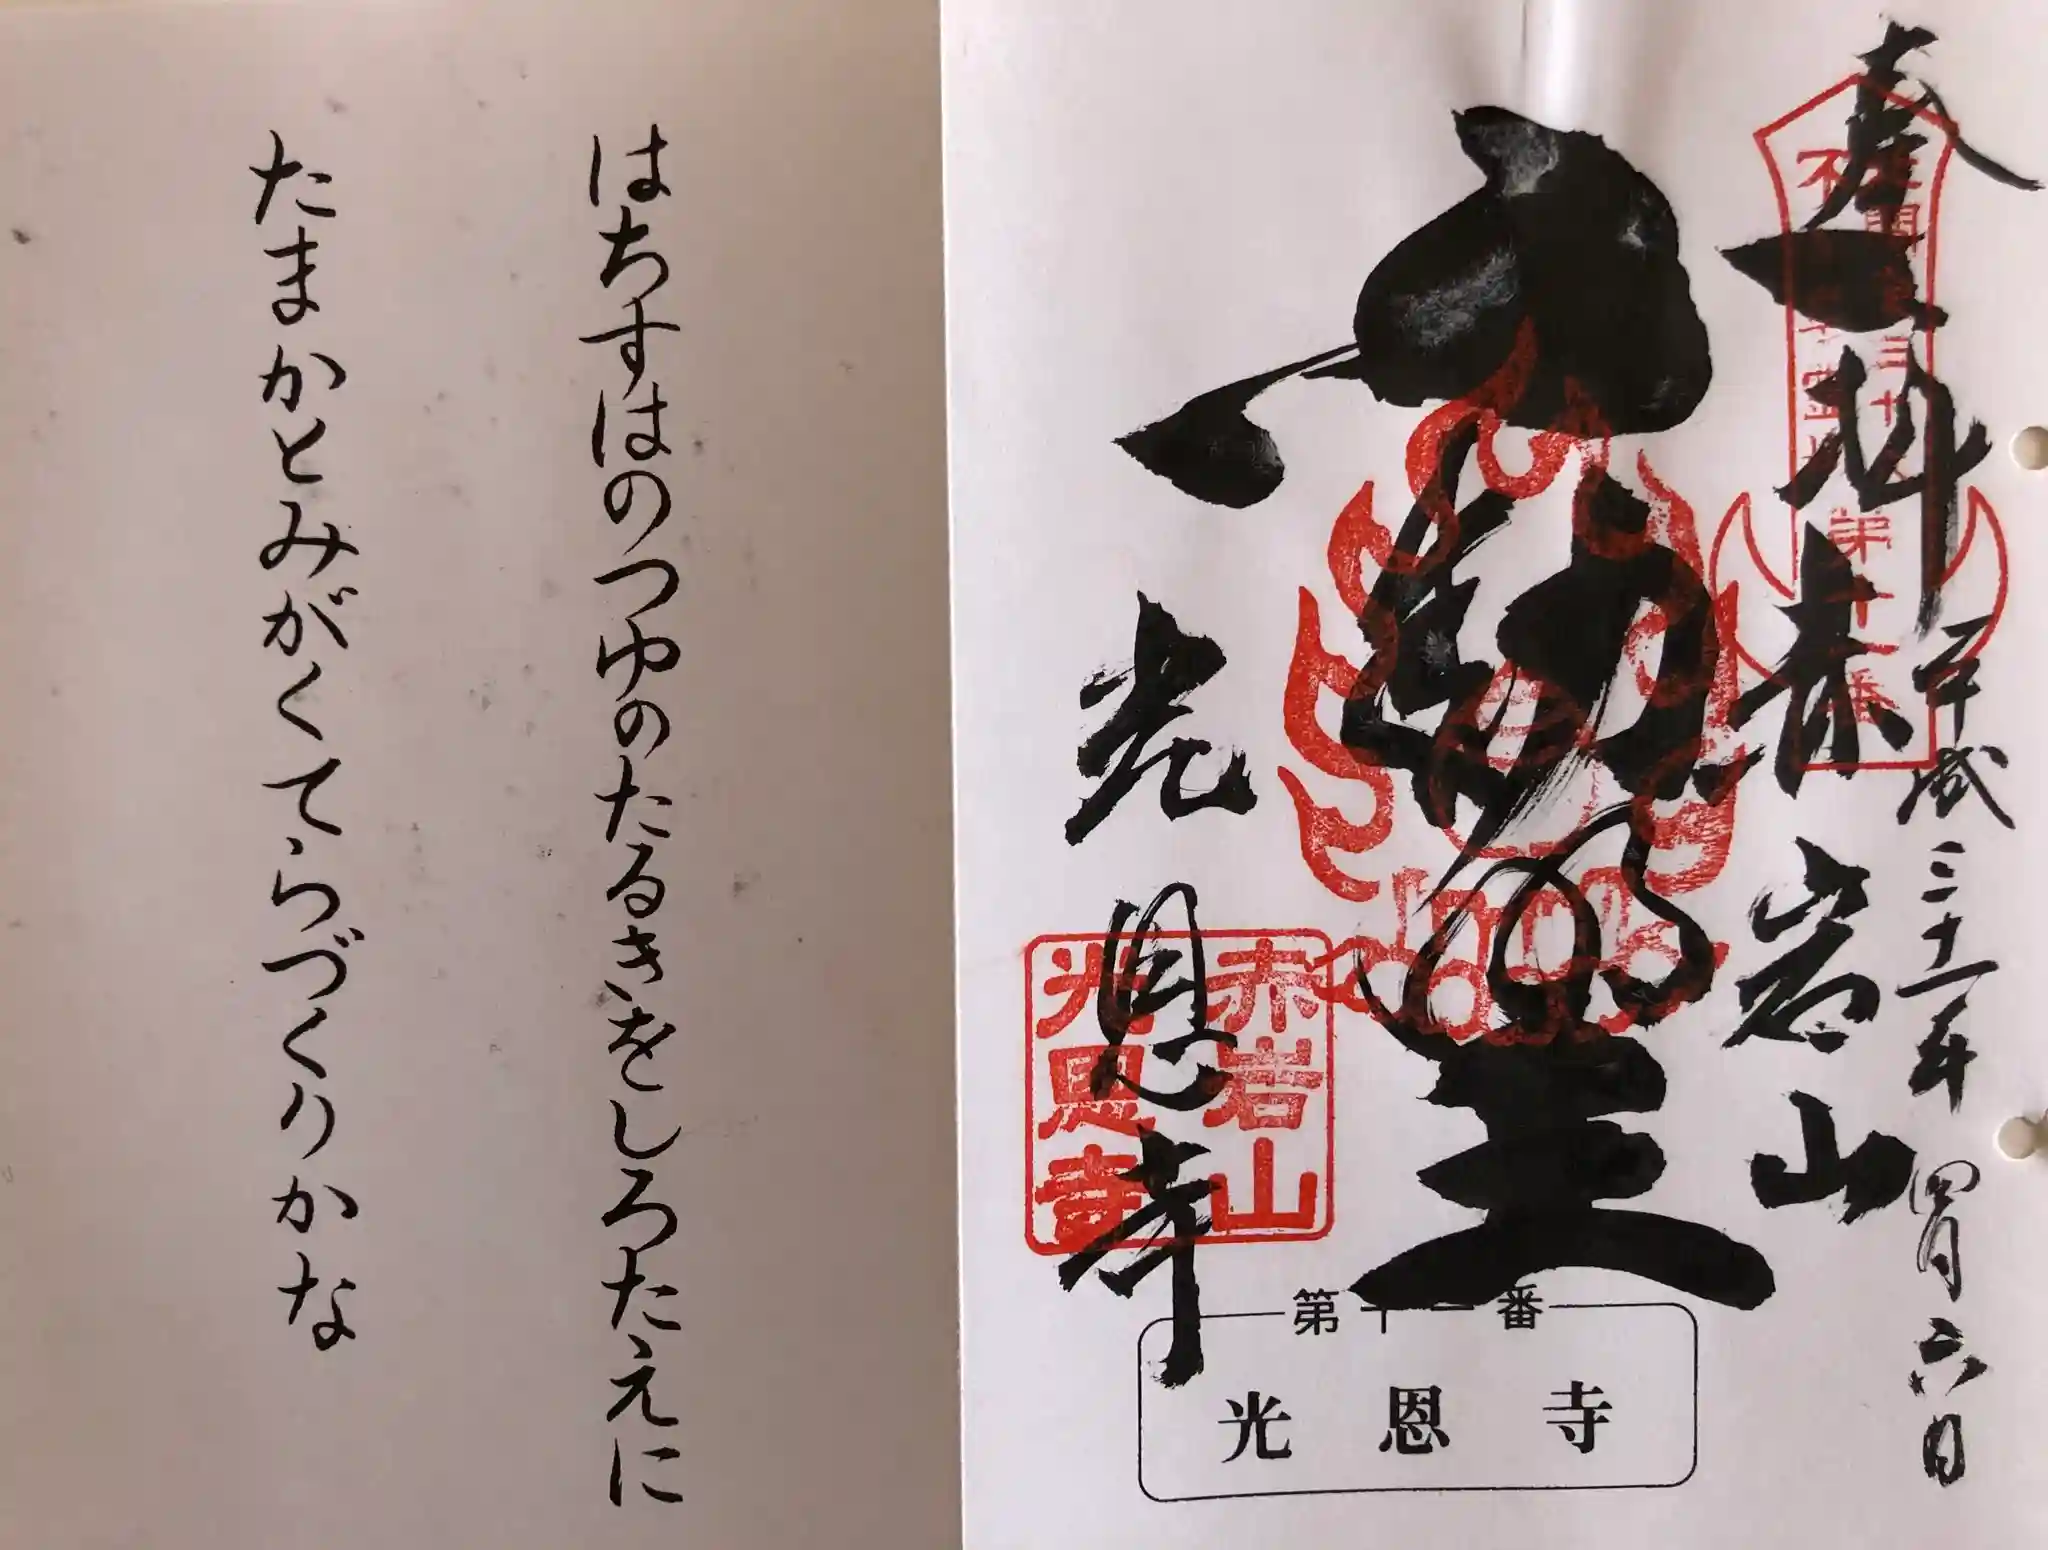 奉拝
平成三十一年四月六日
赤岩山
不動明王
光恩寺
関東三十六
不動 第十一番
赤岩山
光恩寺
第十一番
光恩寺
はちすはのつゆのたるきをしろたえに
たまかとみがくてらづくりかな